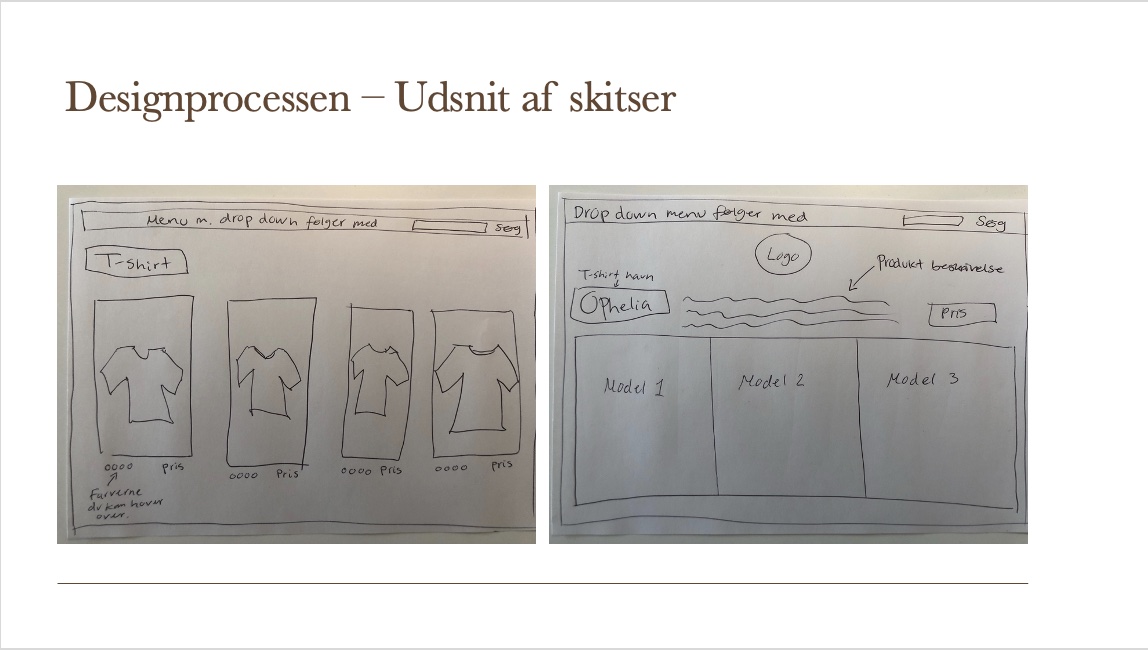 Designprocessen – Udsnit af skitser
Menu m. drop down følger med
Søg
T-shirt
oooo Pris
oooo Pris
oooo Pris
oooo Pris
Farverne
du kan hover
over.
Drop down menu følger med
Søg
Logo
Produkt beskrivelse
T-shirt navn
Ophelia
Pris
Model 1
Model 2
Model 3